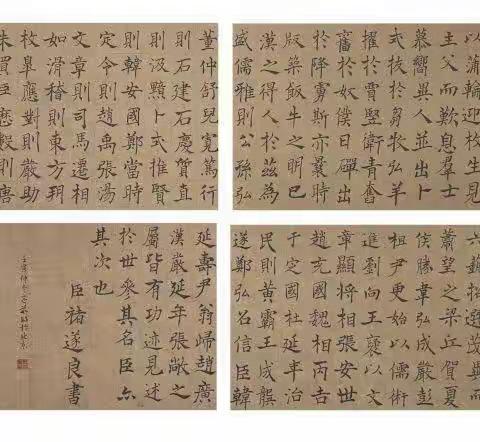 以蒲輪迎枚生見
主父而歎息群士
慕嚮異人並出卜
式拔於芻牧弘羊
擢於賈豎衛青奮
於奴僕日磾出
於降虜斯亦曩時
版築飯牛之明已
漢之得人於茲為
盛儒雅則公孫弘
董仲舒兒寬篤行
則石建石慶質直
則汲黯卜式推賢
則韓安國鄭當時
定令則趙禹張湯
文章則司馬遷相
如滑稽則東方朔
枚皋應對則嚴助
朱買臣歷數則唐
六藝招選茂異而
蕭望之梁丘賀夏
侯勝韋弘成嚴彭
祖尹更始以儒術
進劉向王襃以文
章顯將相張安世
趙充國魏相丙吉
于定國杜延年治
民則黃霸王成龔
遂鄭弘名信臣韓
延壽尹翁歸趙廣
漢嚴延年張敞之
屬皆有功迹見述
於世參其名臣亦
其次也
臣褚遂良書
壬寅仲秋